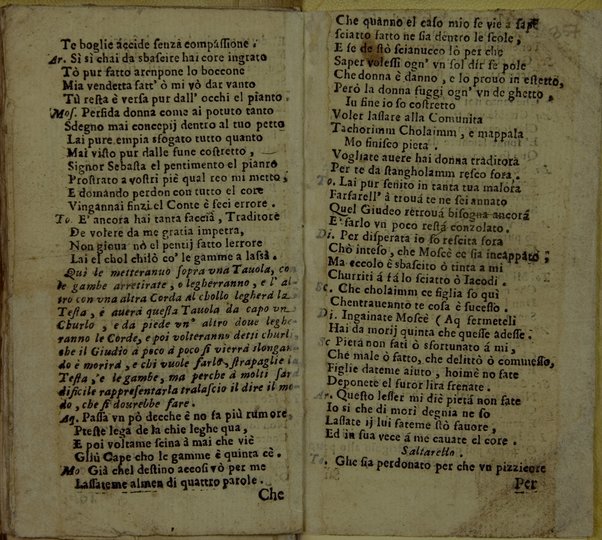 Te boglie accide senza compassione.
Ar. Si si chai da sbascire hai core ingrato
Tò pur fatto arenpone lo boccone
Mia vendetta fatt' ò mi vò dar vanto
Tù resta è versa pur dall' occhi el pianto.
Mos. Perfida donna come ai potuto tanto
Sdegno mai concepij dentro al tuo petto
Lai pure empia sfogato tutto quanto
Mai visto pur dalle fune costretto,
Signor Sebasta el pentimento el pianto
Prostrato a vostri piè qual reo mi metto;
E domando perdon con tutto el core
Vingannai finzi el Conte è feci errore.
To. E' ancora hai tanta facciâ, Traditore
De volere da me gratia impetra,
Non gioua nò el pentij fatto lerrore
Lai el chol chilò co' le gamme a lassà.
Quì le metteranuo sopra vna Tauola, co
le gambe arretirate, o legherranno, e l' al-
tro con vna altra Corda al chollo legherà la
Testa, e auerà questa Tauola da capo vn
Churlo, e da piede vn' altro doue leghe-
ranno le Corde, e poi volteranno detti churli,
che il Giudio à poco à poco si vierrà slongan-
do è morirà, e chi vuole farlo, strapagli e
Testa, e le gambe, ma perche à molti sar
dificile rappresentarla tralascio il dire il mo-
do, che si dourebbe fare.
Aq. Passa vn pò decche è no fa più rumore,
Preste lega de la chie leghe qua,
E poi voltame seina à mai che viè
Gliù Cape cho le gamme è quinta cè.
Mo. Già chel destino accosi vò per me
Lassateme almen di quattro parole.
Che
Che quanno el caso mio se viè a sape
sciatto fatto ne sia dentro le scole,
E se de stò scianucco lò per che
Saper volessi ogn' vn sol dir se pole
Che donna è danno, e lo prouo in estetto,
Però la donna fuggi ogn' vn de ghetto,
Iu fine io so costretto
Voler lassare alla Comunita
Tachorimm Cholaimm, e mappala
Mo finisco pieta.
Vogliate auere hai donna traditora
Per te da stangholamm resco fora.
To. Lai pur fenito in tanta tua malora
Farfarell' à trouà te ne sei annato
Quel Giudeo retrouà bisogna ancorà
E' farlo vn poco restà conzolato.
Di. Per disperata io so rescita fora
Chò inteso, che Moscè ce sia incappato;
Ma eccolo è sbascito ò tinta a mi
Churriti á fá lo sciatto ò Iacodi.
Sc. Che cholaimm ce figlia so quì
Chentrauennto te cosa è successo.
Di. Ingainate Moscè ( Aq fermeteli
Hai da morij quinta che quesse adesse.
Sc Pietà non fati ò sfortunato á mi,
Che male ò fatto, che delittò ò commesso,
Figlie dateme aiuto, hoimè no fate
Deponete el furor lira frenate.
Ar. Questo lesser mi diè pietá non fate
Io si che di morì degnia ne so
Lassate ij lui fateme stò fauore,
Ed in sua vece á me cauate el core.
Saltarello.
To. Ghe sia perdonato per che vn pizzicore
Per